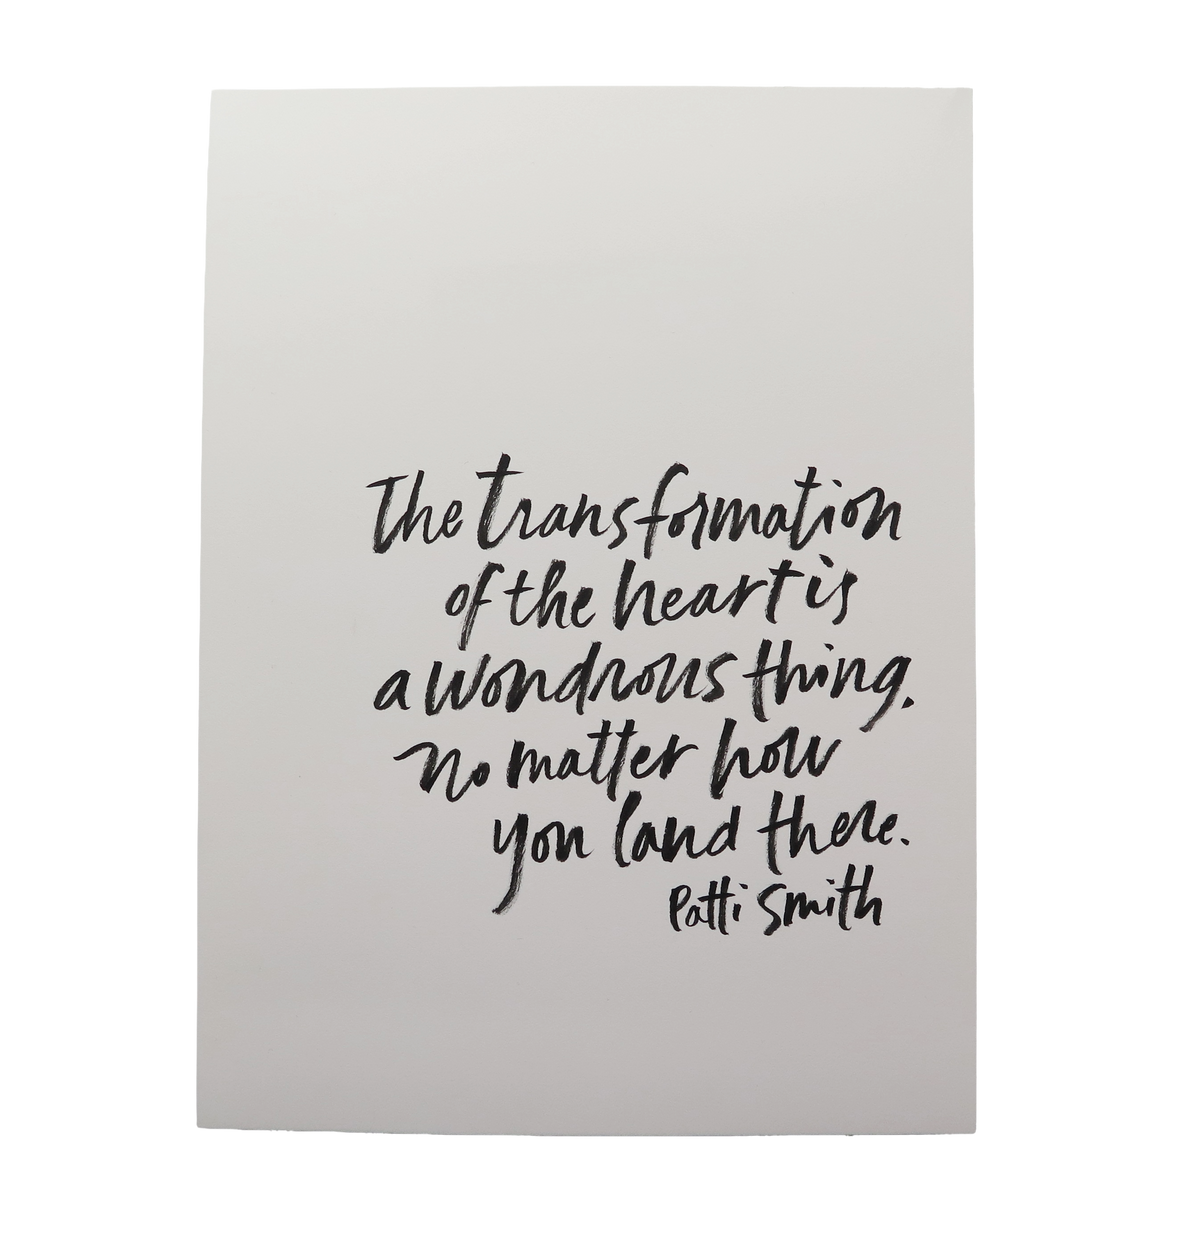 The transformation
of the heart is
a wondrous thing.
no matter how
you land there.
Patti Smith